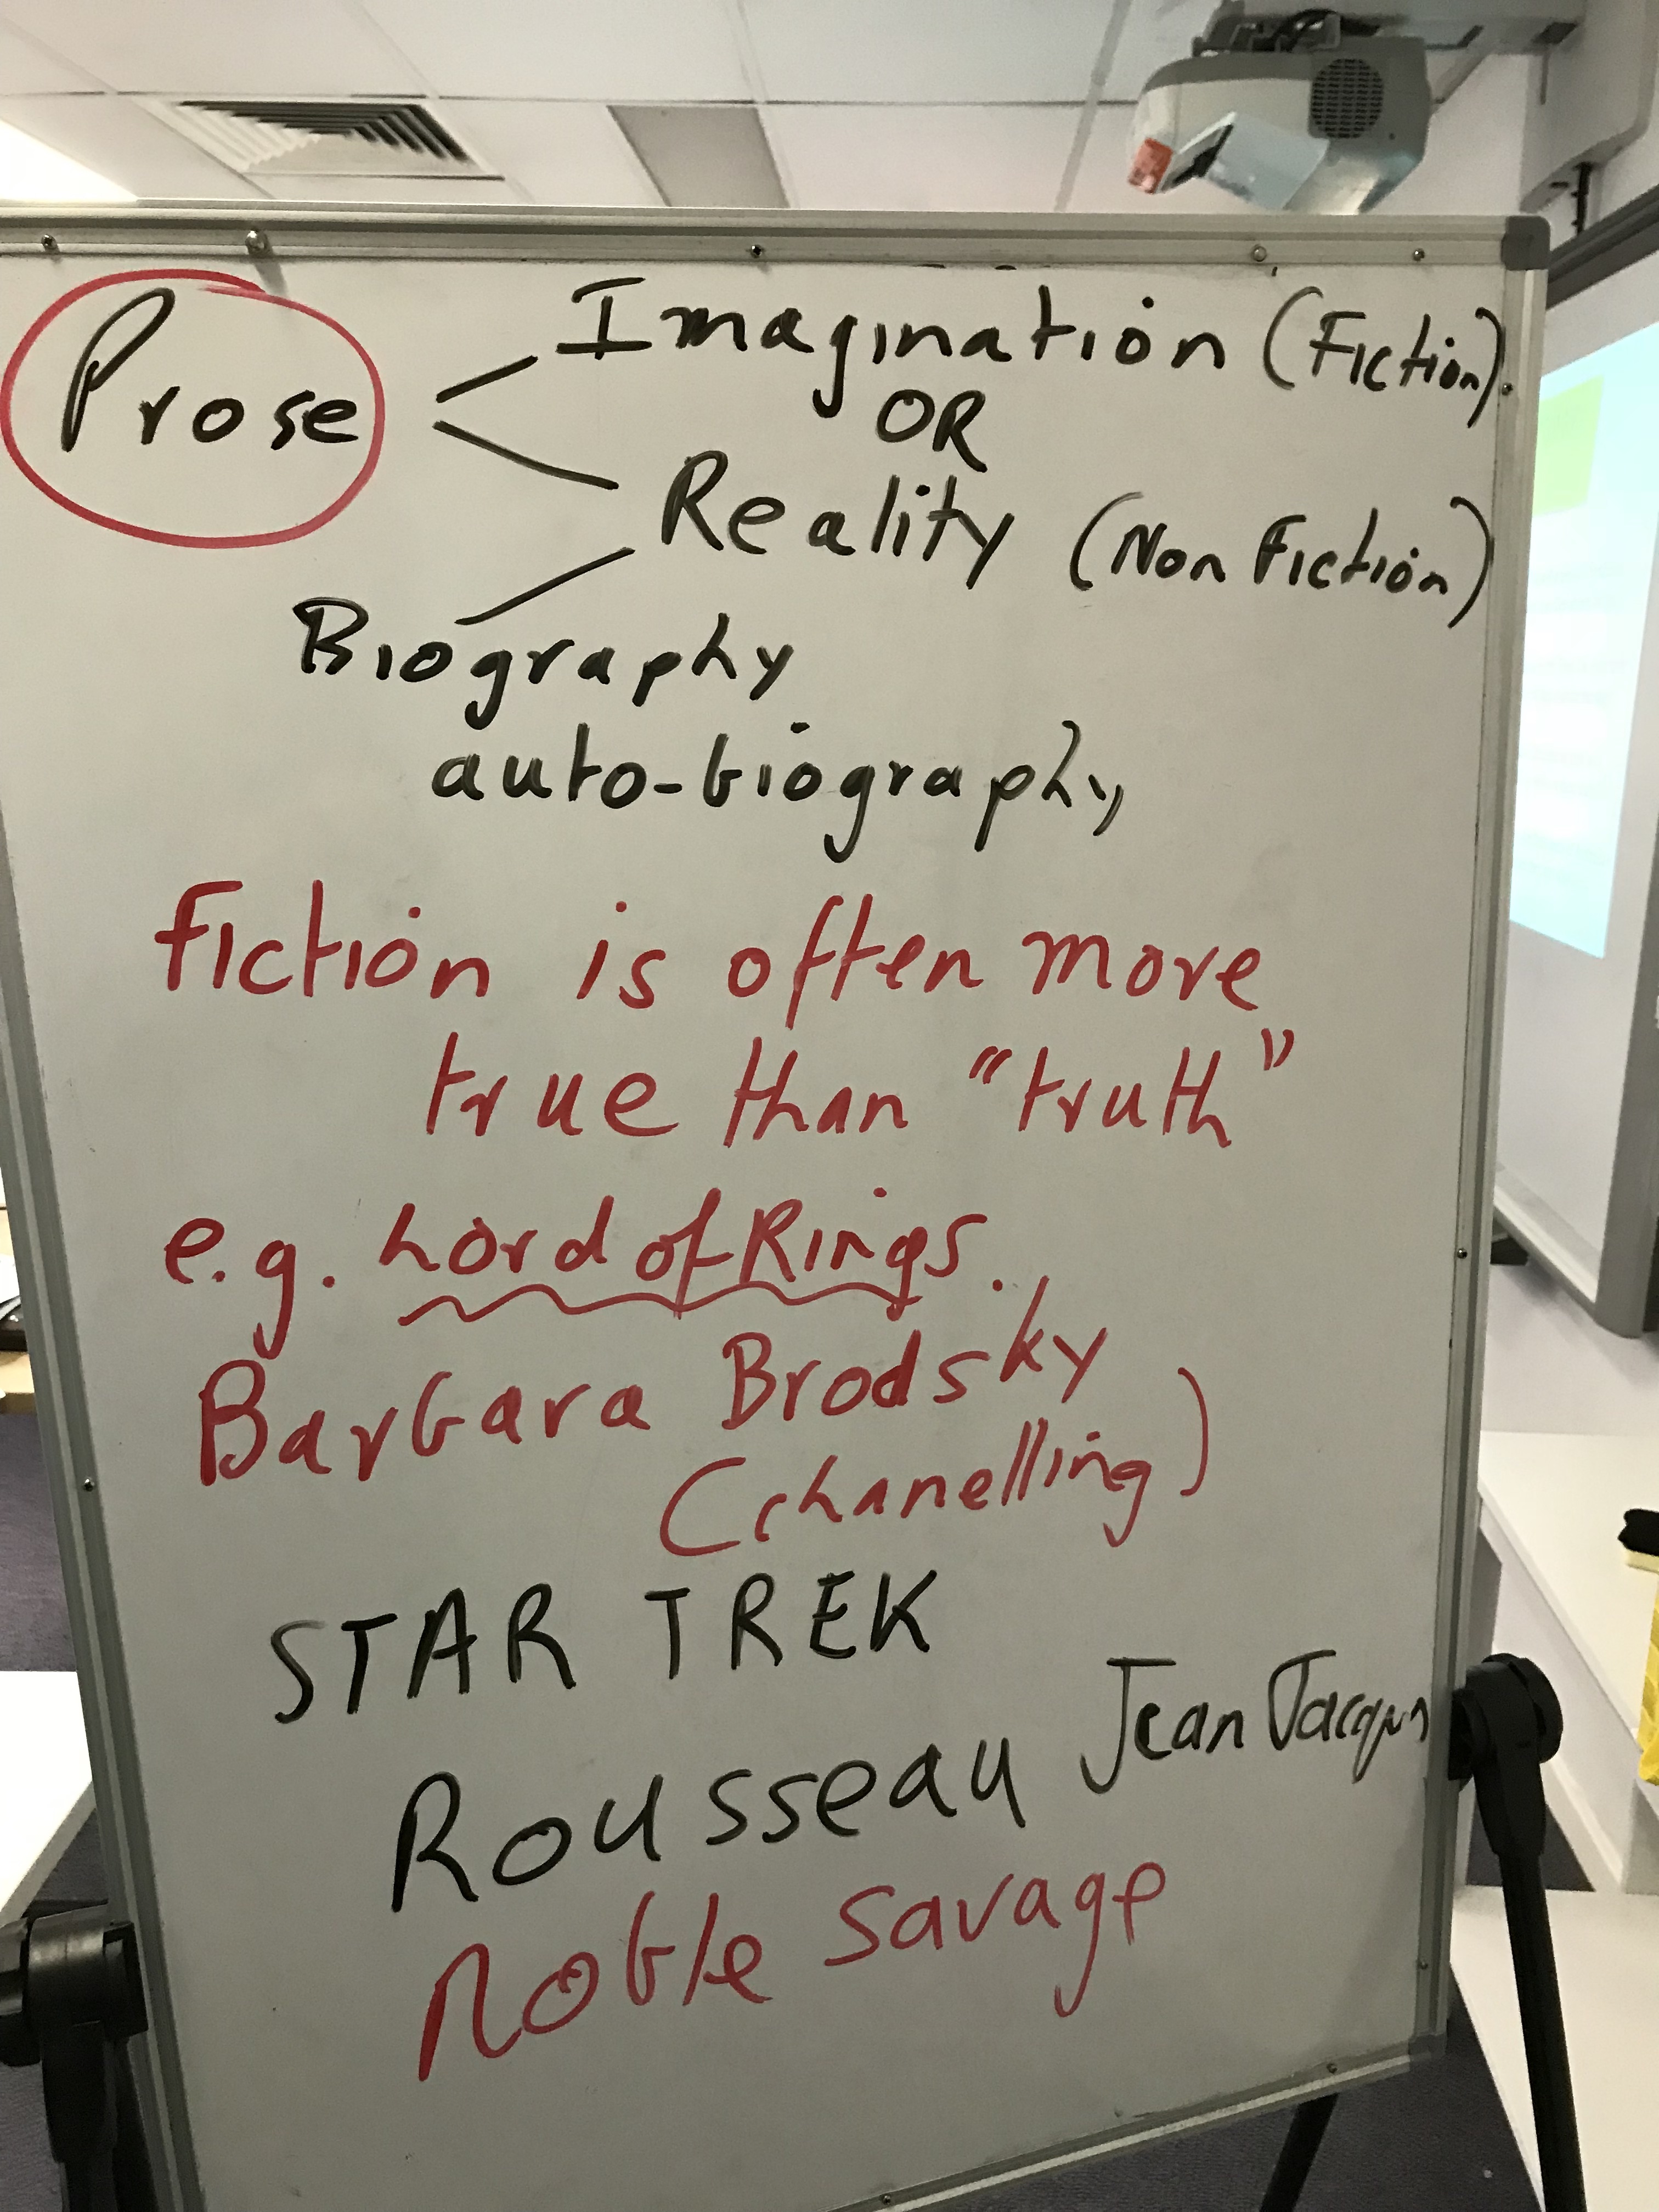 Prose
Imagination (Fiction).
OR
Reality (Non Fiction)
Biography
auto-biography,
Fiction is often more
true than "truth"
e.g. Lord of Rings.
Barbara Brodsky
(chanelling)
STAR TREK
Rousseau Jean Jacques
Noble savage